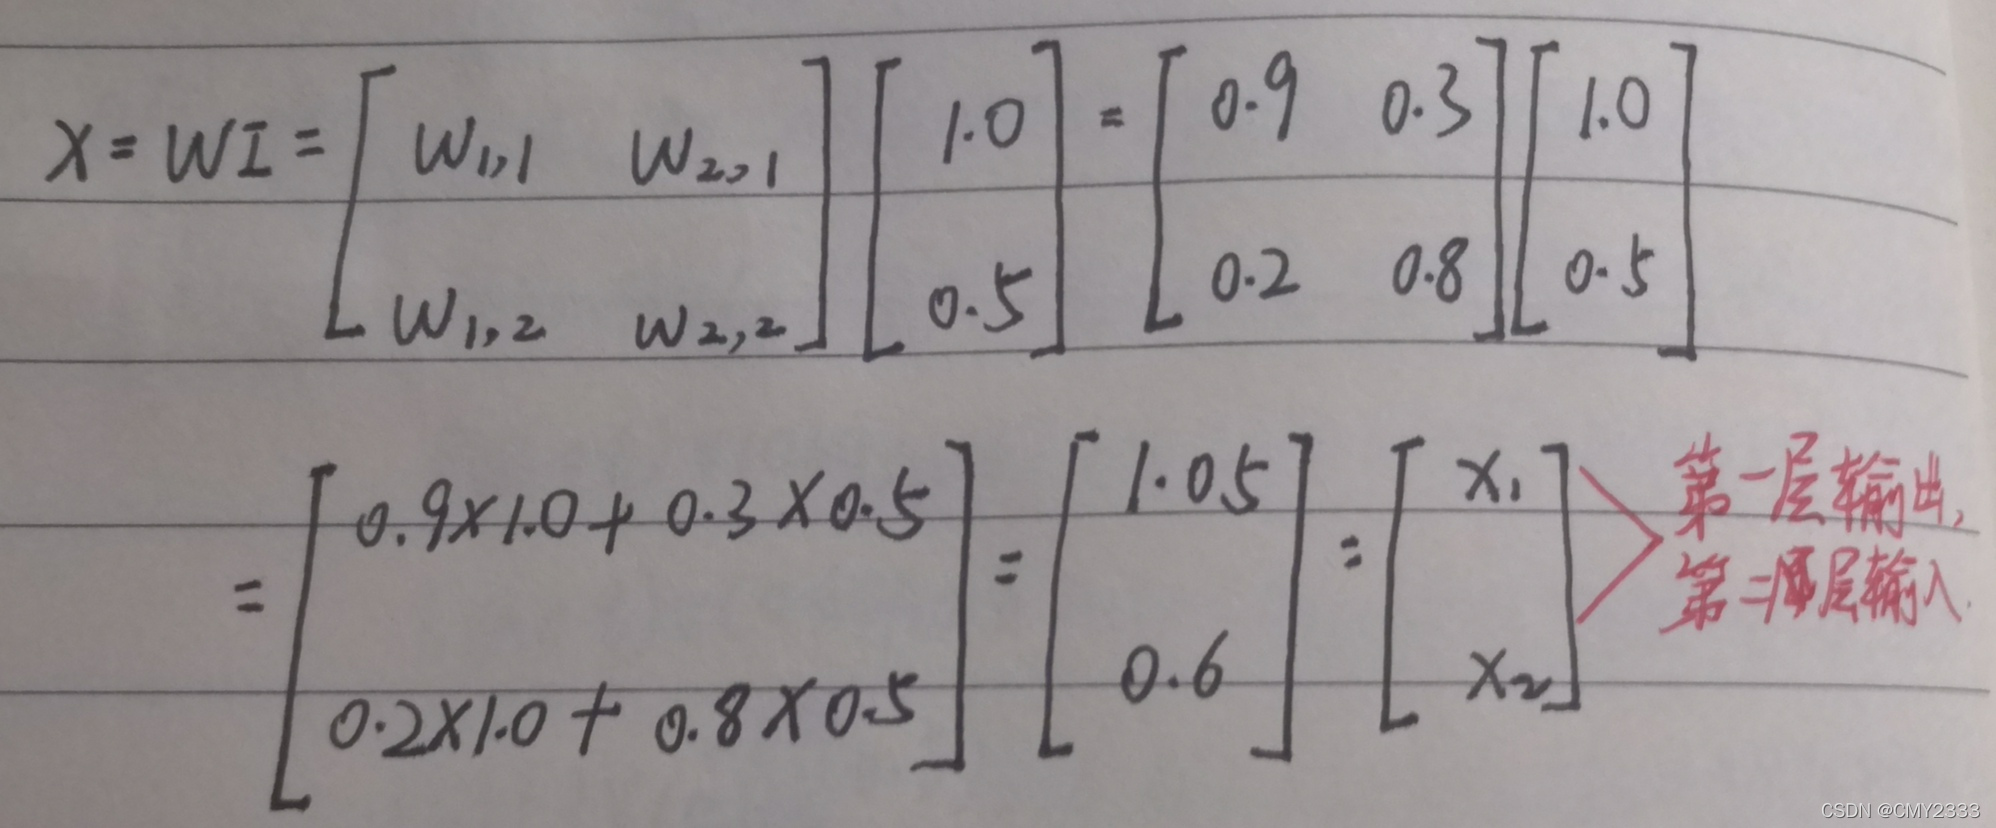 X = WI = [ W1,1 W2,1 ; W1,2 W2,2 ] [ 1.0 ; 0.5 ] = [ 0.9 0.3 ; 0.2 0.8 ] [ 1.0 ; 0.5 ]
= [ 0.9×1.0 + 0.3×0.5 ; 0.2×1.0 + 0.8×0.5 ] = [ 1.05 ; 0.6 ] = [ x1 ; x2 ]
第一层输出,
第二层输入.
CSDN @CMY2333